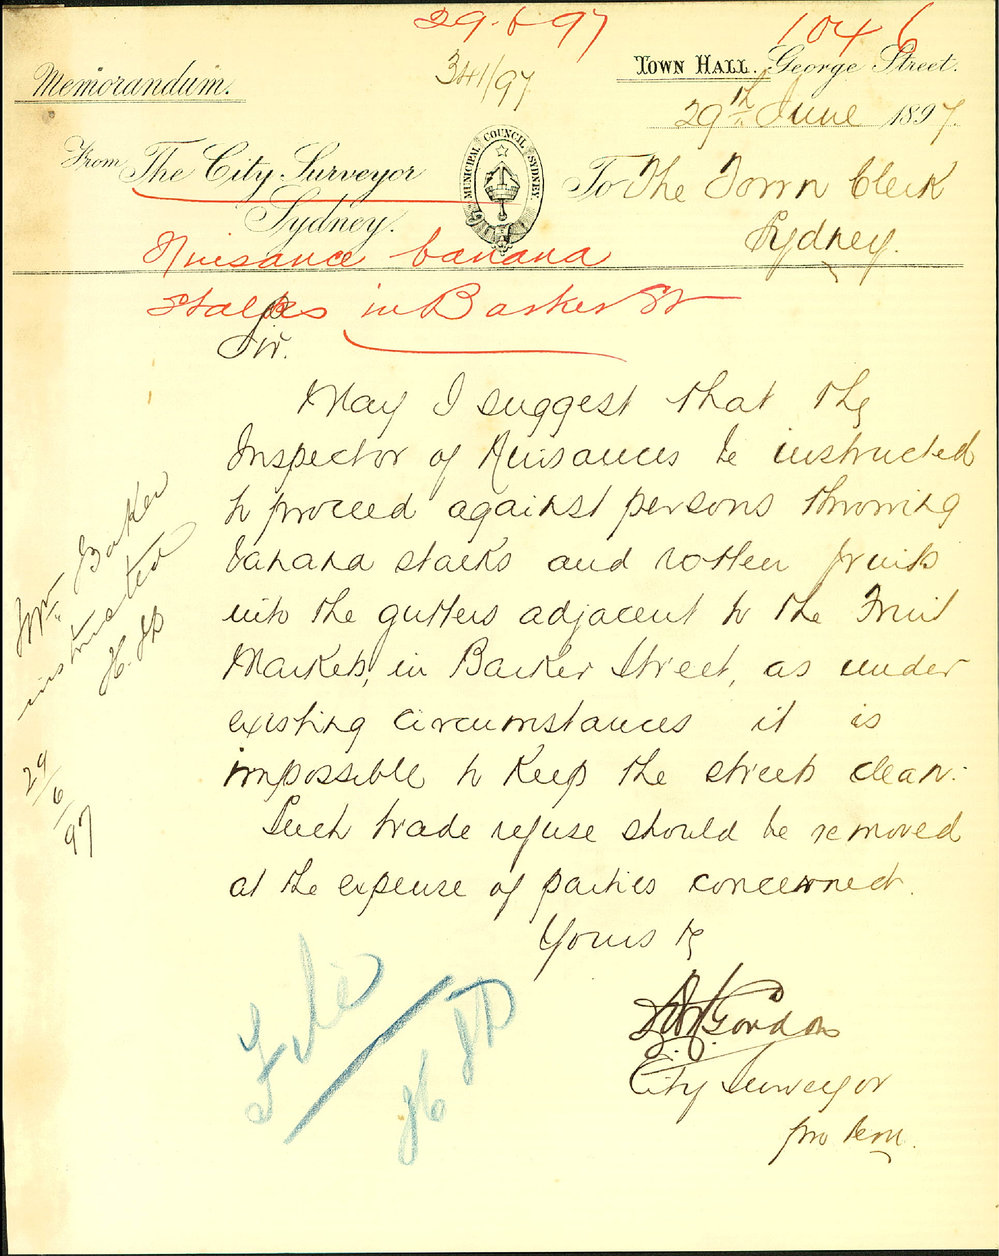 29.6.97
1046
341/97
Memorandum.
TOWN HALL. George Street.
29th June 1897.
From The City Surveyor
Sydney.
MUNICIPAL COUNCIL SYDNEY
To The Town Clerk
Sydney.
Nuisance banana
Stalks in Barker St
Sir.
May I suggest that the
Inspector of Nuisances be instructed
to proceed against persons throwing
banana stalks and rotten fruits
into the gutters adjacent to the Fruit
Markets, in Barker Street, as under
existing circumstances it is
impossible to keep the streets clean.
Such trade refuse should be removed
at the expense of parties concerned.
Yours
Gordon
City Surveyor
pro tem.
Baker
instructed
29/6/97
File